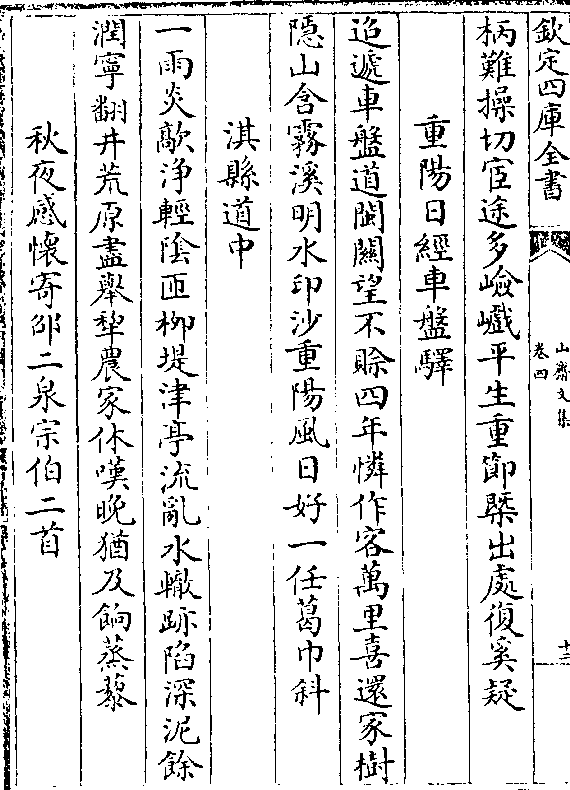 欽定四庫全書
山齋文集
卷四
十三
柄難操切宦途多嶮巇平生重節槩出處復奚疑
重陽日經車盤驛
迢遞車盤道閩關望不賒四年憐作客萬里喜還家樹
隠山含霧溪明水印沙重陽風日好一任葛巾斜
淇縣道中
一雨炎歊浄輕陰匝柳堤津亭流亂水轍跡陷深泥餘
潤寧翻井荒原盡舉犂農家休嘆晩猶及餉蒸藜
秋夜感懷寄邵二泉宗伯二首